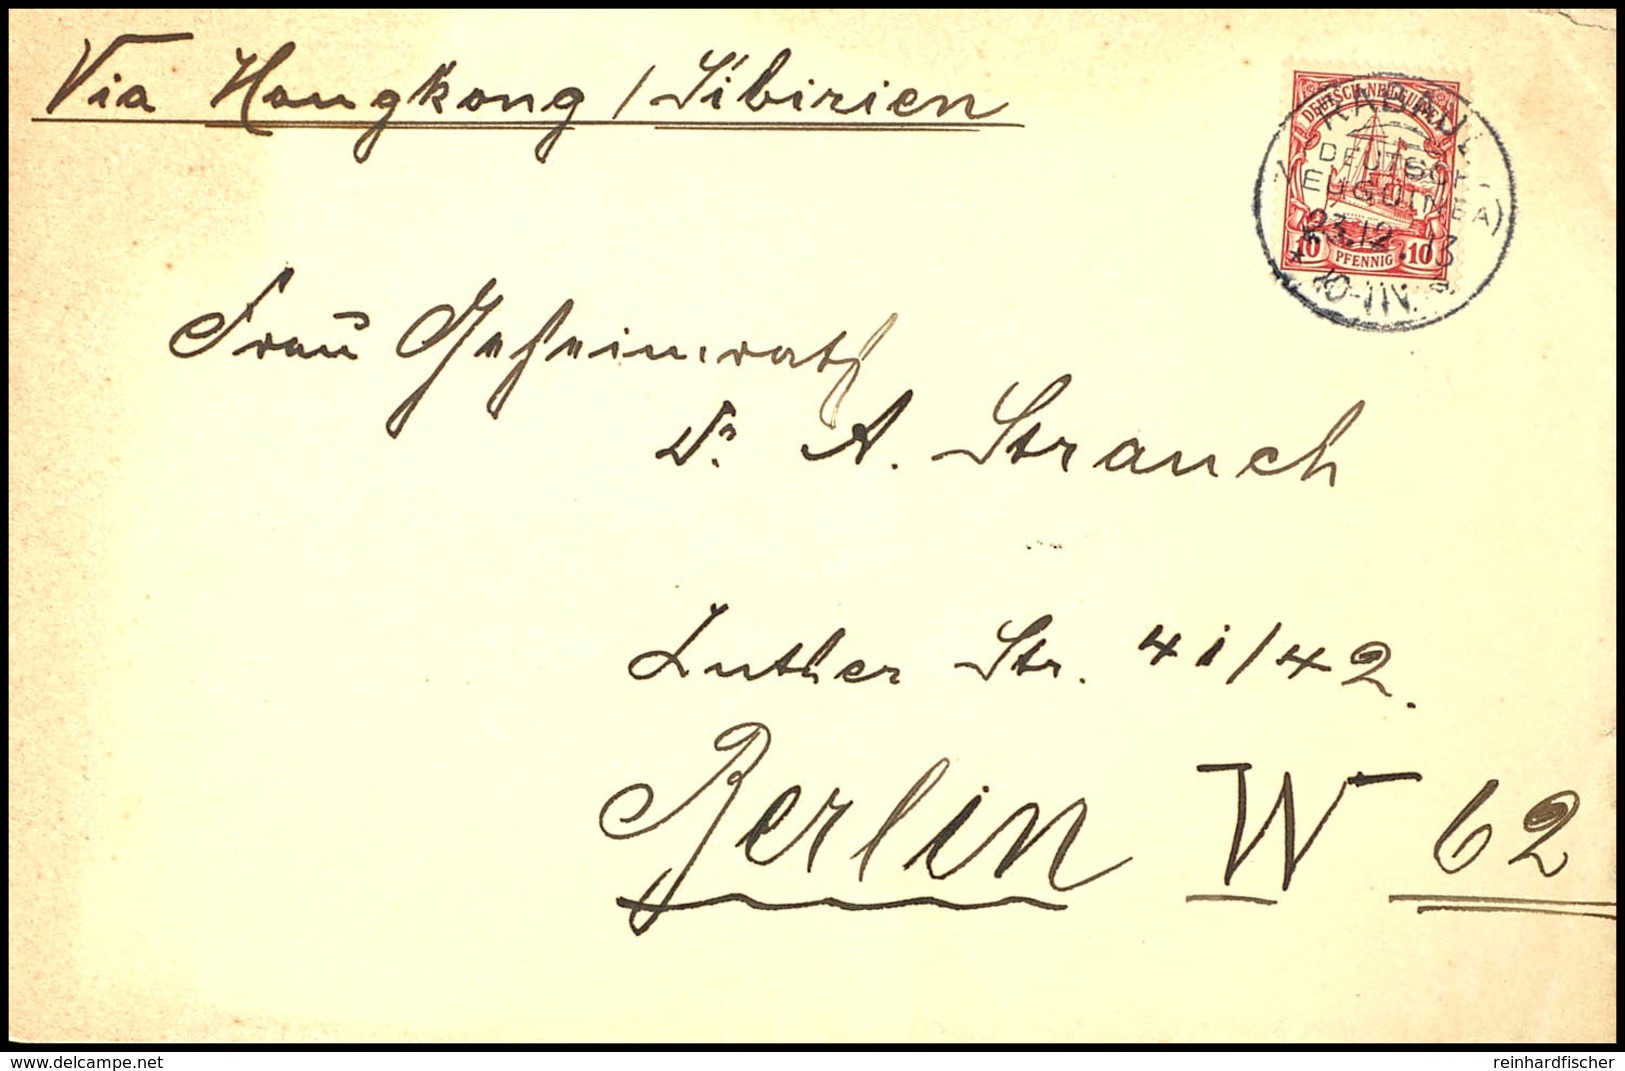 Via Hongkong / Sibirien
DEUTSCH-NEUGUINEA
RABAUL
(DEUTSCH-
NEUGUINEA)
23.12.13
10-11V.
10 PFENNIG 10
Frau Geheimrath
Dr. A. Strauch
Luther Str. 41/42.
Berlin W 62
www.delcampe.net
reinhardfischer